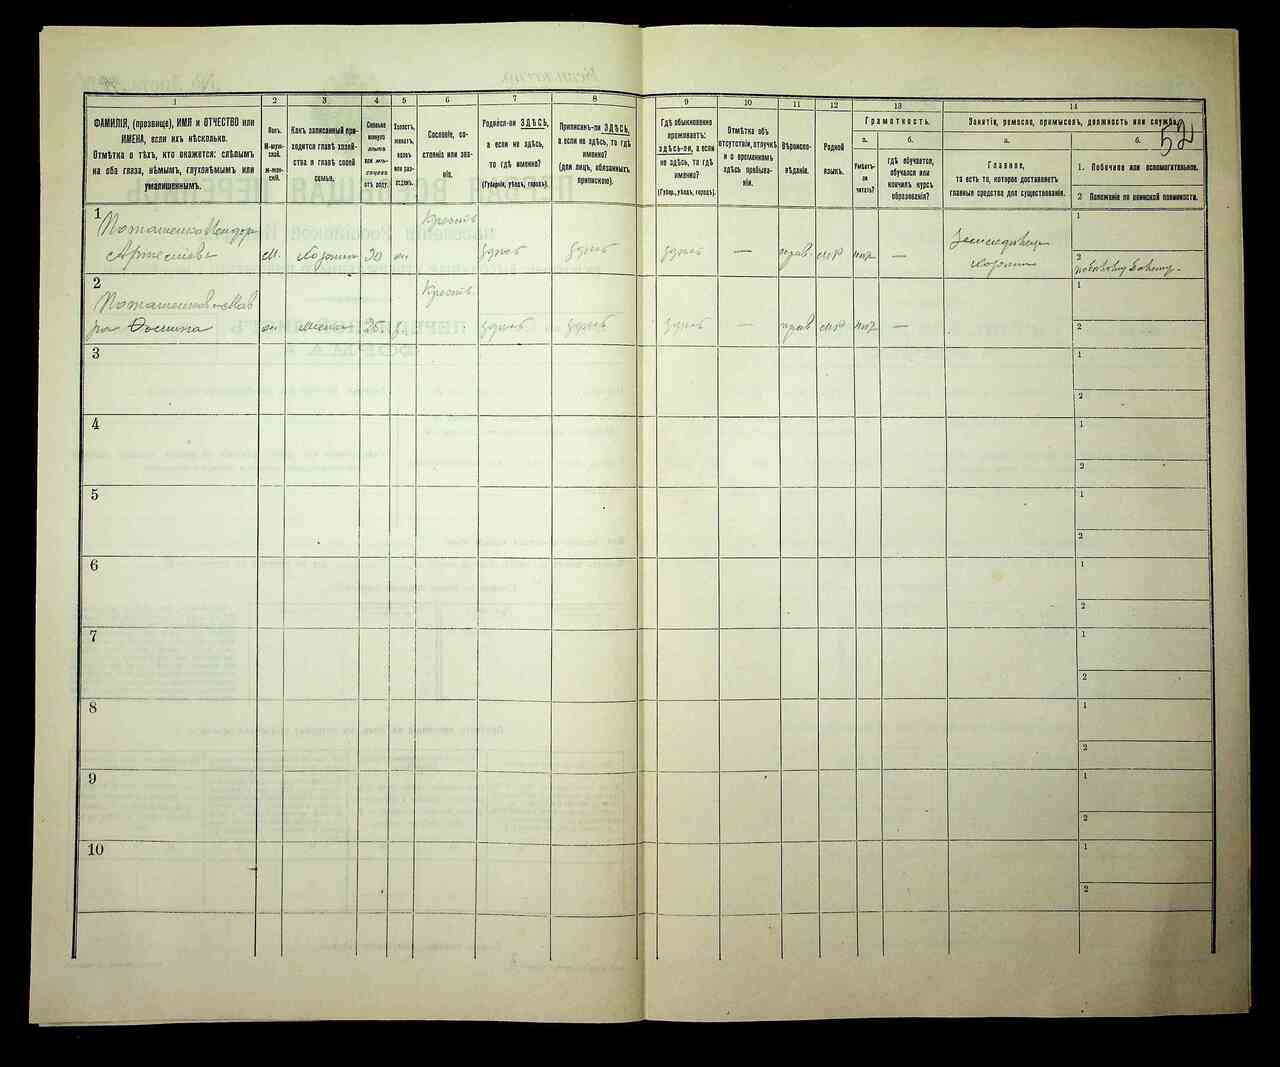 52
1
2
3
4
5
6
7
8
9
10
11
12
13
14
ФАМИЛІЯ, (прозвище), ИМЯ и ОТЧЕСТВО или
ИМЕНА, если ихъ нѣсколько.
Отмѣтка о тѣхъ, кто окажется: слѣпымъ
на оба глаза, нѣмымъ, глухонѣмымъ или
умалишеннымъ.
Полъ.
М-муж-
ской.
Ж-жен-
скій.
Какъ записанный при-
ходится главѣ хозяй-
ства и главѣ своей
семьи.
Сколько
минуло
лѣтъ
или мѣ-
сяцевъ
отъ роду.
Холостъ,
женатъ,
вдовъ
или раз-
веденъ.
Сословіе, со-
стояніе или зва-
ніе.
Родился-ли ЗДѢСЬ,
а если не здѣсь,
то гдѣ именно?
(Губернія, уѣздъ, городъ).
Приписанъ-ли ЗДѢСЬ,
а если не здѣсь, то гдѣ
именно?
(для лицъ, обязанныхъ
припискою).
Гдѣ обыкновенно
проживаетъ:
здѣсь-ли, а если
не здѣсь, то гдѣ
именно?
(Губер., уѣздъ, городъ).
Отмѣтка объ
отсутствіи, отлучкѣ
и о временномъ
здѣсь пребыва-
ніи.
Вѣроиспо-
вѣданіе.
Родной
языкъ.
Грамотность.
а.
б.
Умѣетъ-
ли
читать?
гдѣ обучается,
обучался или
кончилъ курсъ
образованія?
Занятіе, ремесло, промыселъ, должность или служба.
а.
б.
Главное,
то есть то, которое доставляетъ
главныя средства для существованія.
1. Побочное или вспомогательное.
2 Положеніе по воинской повинности.
1
Крестьян.
1
Поташенко
М.
Хозяинъ
здѣсь
здѣсь
здѣсь
—
прав.
мал
нѣт
—
Земледѣлец
хозяин
2
2
Крестьян.
1
жена
здѣсь
здѣсь
здѣсь
—
прав
мал
нѣт
—
2
3
1
2
4
1
2
5
1
2
6
1
2
7
1
2
8
1
2
9
1
2
10
1
2